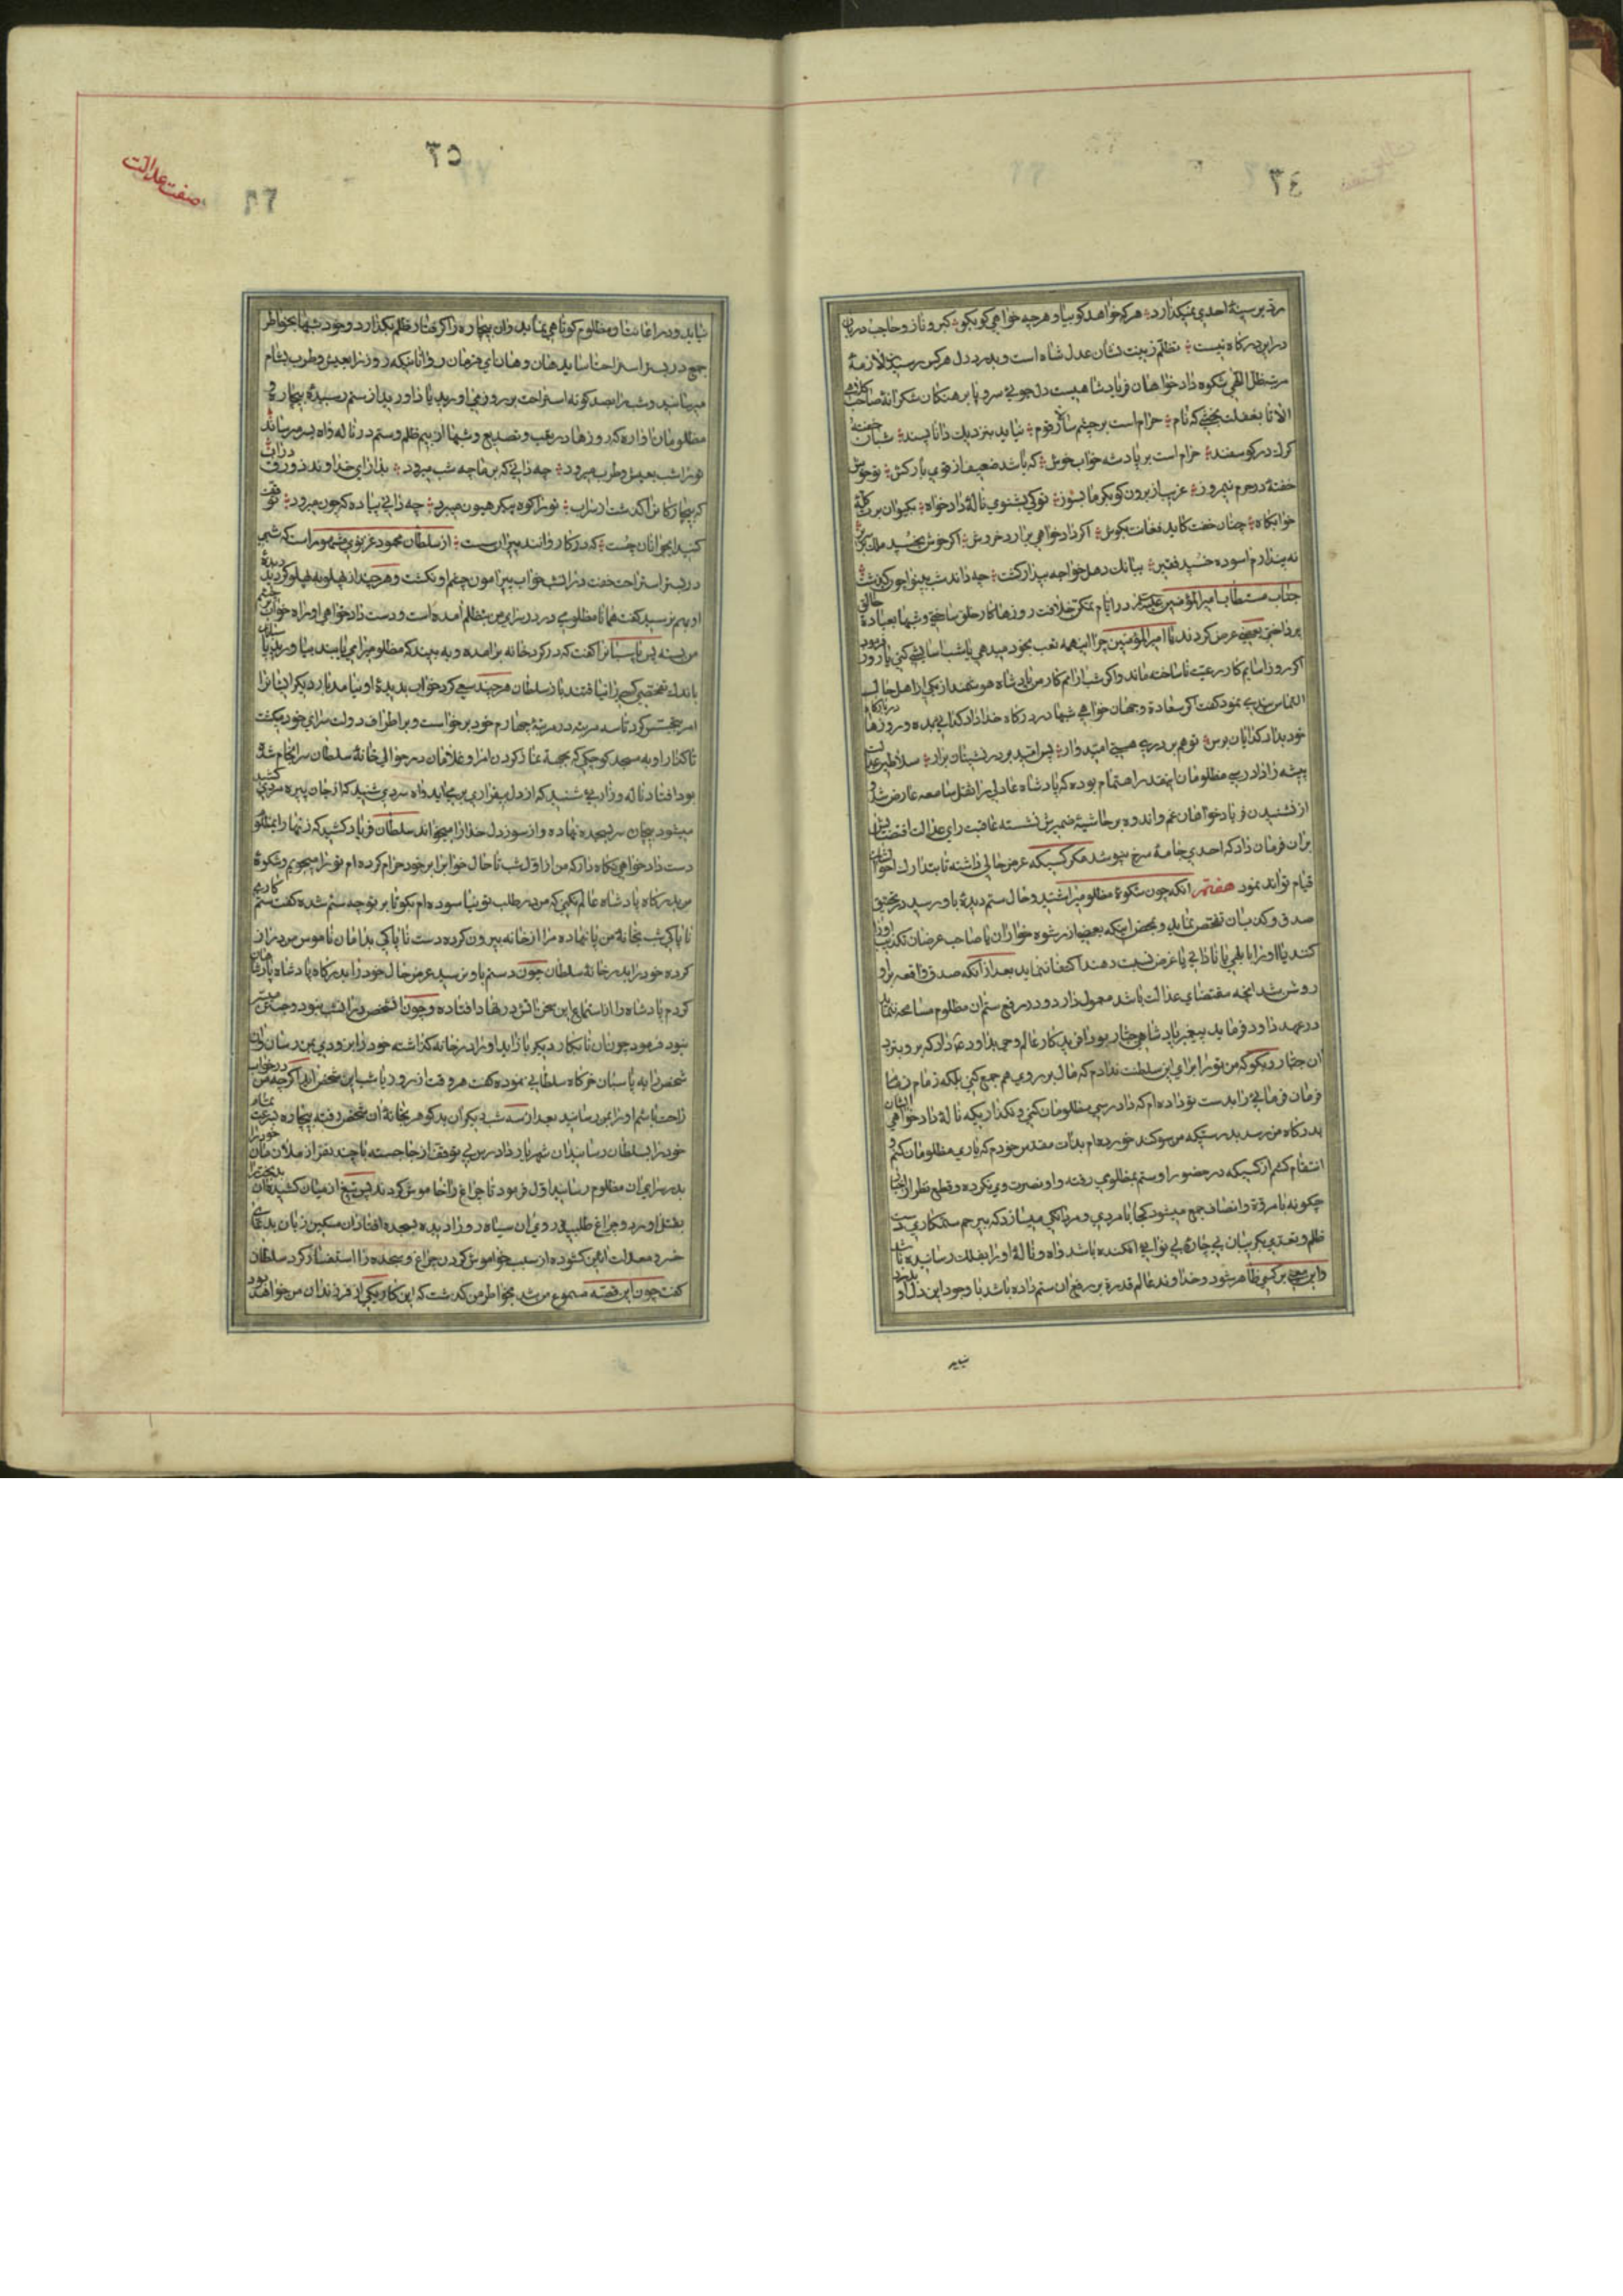 ٣٤
مرتد بر سینهٔ احدی نمیگذارد هر که خواهد گو بیا و هر چه خواهی گو بگو کبر و ناز و حاجب و دربان
در این درگاه نیست تظلم زینت نشان عدل شاه است و بدرد دل هر کس رسیدن لازمهٔ
مرتبه ظل الهی شکوه دادخواهان فریاد شاهیست دلجوئی سر و پا برهنگان شکرانهٔ صاحب کلاهی
الا تا بغفلت نخفتی که نام حرام است بر چشم سالار قوم نیاید بنزدیک دانا پسند شبان خفته
گرک در گوسفند حرام است بر پادشه خواب خوش که باشد ضعیف از قوی بارکش تو خوش
خفتهٔ در حرم نیمروز غریب از برون گو بگرما بسوز تو کی بشنوی نالهٔ دادخواه بکیوان برت کلهٔ
خوابگاه چنان خفت کاید فغانت بگوش اگر دادخواهی برآرد خروش اگر خوش بخسبد ملک بر سریر
نه پندارم آسوده خسبد فقیر ببانک دهل خواجه بیدار کشت چه داند شب بینوا چون گذشت
جناب مستطاب امیر المؤمنین در ایام تمکن خلافت روزها کار خلق ساختی و شبها بعبادة خالق
پرداختی بعضی عرض کردند یا امیر المؤمنین چرا این همه تعب بخود میدهی یا شب آسایشی کنی یا روز فرمود
اگر روز آسایم کار رعیت ناساخته ماند و اگر شب آرام کار من پادشاه هوشمند از یکی از اهل حال
التماس پندی نمود گفت اگر سعادة دو جهان خواهی شبها در درگاه خدا داد گدائی بده و روزها در بارگاه
خود بداد گدایان برس تو هم بر دری هستی امیدوار پس امید بر در نشینان برآر سلاطین عدالت
پیشه را داد رسی مظلومان اینقدر اهتمام بوده که پادشاه عادلی را ثقل سامعه عارض شد و
از نشنیدن فریاد خواهان غم و اندوه بر حاشیهٔ ضمیرش نشسته عاقبت رای عدالت اقتضایش
بر آن فرمان داد که احدی جامهٔ سرخ نپوشد مگر کسیکه عرض حالی داشته تا بتدارک احوال ایشان
قیام تواند نمود هفتم آنکه چون شکوهٔ مظلومی را شنید و حال ستم دیدهٔ باو رسید در تحقیق
صدق و کذب آن تفحص نماید و بمحض اینکه بعضی از رشوه خواران یا صاحب غرضان تکذیب او را
کنند یا او را بابلهی یا نادانی یا غرض نسبت دهند اکتفا ننماید بعد از آنکه صدق واقعه بر او
روشن شد آنچه مقتضای عدالت باشد معمول دارد و در رفع ستم از مظلوم مسامحه ننماید
در عهد داود فرماید پیغمبر پادشاهی جبار بود آفریدگار عالم وحی بداود داد که برو بنزد
آن جبار و بگو که من تو را برای این سلطنت ندادم که مال بر روی هم جمع کنی بلکه زمام
فرمان فرمائی را بدست تو داده ام که داد رسی مظلومان کنی و نگذاری که نالهٔ دادخواهی ایشان
بدرگاه من رسد بدرستیکه من سوگند خورده ام بذات مقدس خودم که یاری مظلومان کنم و
انتقام کشم از کسیکه در حضور او ستم بمظلومی رفته و او نصرت وی نکرده و قطع نظر از اینها
چگونه با مروة و انصاف جمع میشود کجا با مردی و مردانگی میسازد که بیرحم ستمکاری دست
ظلم و تعدی بگریبان بی چارهٔ بی نوائی افکنده باشد و آه و نالهٔ او را بفلک رسانیده باشد
و این معنی بر کسی ظاهر شود و خداوند عالم قدرة بر رفع آن ستم داده باشد با وجود این دل او بدرد
نیاید

صفت عدالت
٣٥
نیاید و در اعانت آن مظلوم کوتاهی نماید و آن بیچاره را گرفتار ظلم بگذارد و خود شبها بخواطر
جمع در بستر استراحت آساید هان و هان ای فرمان روا آنانیکه روز را بعیش و طرب بشام
میرسانید و شب را بصد گونه استراحت بر روز می آورید یاد آورید از ستم رسیدهٔ بیچاره و
مظلومان آواره که روزها در تعب و تصدیع و شبها از بیم ظلم و ستم در ناله و آه بسر میرسانند
تو را شب بعیش و طرب میرود چه دانی که بر ما چه شب میرود بدار ای خداوند زورق در آب
که بیچارگان را گذشت از سر آب تو را کوه پیکر هیون میبرد چه دانی پیاده که چون میرود
کنید ای جوانان چست که در کاروانند پیران سست از سلطان محمود غزنوی مشهور است که شبی
در بستر استراحت خفت در آن شب خواب پیرامون چشم او نگشت و هر چند از پهلو به پهلو گردید
او بهم نرسید گفت همانا مظلومی در درسرای من بتظلم آمده است و دست دادخواهی او راه خواب چشم
من بسته پس پاسبانرا گفت که در گرد خانه برآمده و به بینند که مظلومی را می یابند بیاورید
باندک تفحصی کسی را نیافتند باز سلطان هر چند سعی کرد خواب بدیدهٔ او نیامد بار دیگر ایشانرا
امر بتجسس کرد تا سه مرتبه در مرتبهٔ چهارم خود برخواست و بر اطراف دولت سرای خود میگشت
تا گذار او به مسجد کوچکی که بجهة نماز کردن امرا و غلامان در حوالی خانهٔ سلطان سرانجام شده
بود افتاد ناله و زاری شنید که از دل بیقراری بر می آید و آه سردی شنید که از جان پر درد کشید
میشود سر بسجده نهاده و از سوز دل خدا را میخواند سلطان فریاد کشید که زنهار ای مظلوم
دست دادخواهی نگاه دار که من از اول شب تا حال خواب را بر خود حرام کرده ام تو را میجویم و شکوهٔ
مرا بدرگاه پادشاه عالم نکنی که من در طلب تو نیاسوده ام بگو تا بر تو چه ستم شده گفت ستم کاری
ناپاکی شب بخانهٔ من پا نهاده مرا از خانه بیرون کرده دست ناپاکی بدامان ناموس من دراز
کرده خود را بدر خانهٔ سلطان چون دستم باو نرسید عرض حال خود را بدرگاه پادشاه پادشاهان
کردم پادشاه را از استماع این سخن آتش در نهاد افتاده و چون آن شخص در آن شب نبود و جستن میسر
نبود فرمود چون آن نابکار دیگر باز آید او را در خانه گذاشته خود را بزودی بمن رسان و آن
شخص را به پاسبان خرگاه سلطانی نموده گفت هر وقت از روز یا شب این شخص آید اگر چه من در خواب
راحت باشم او را بمن رسانید بعد از سه شب دیگر آن بدگوهر بخانهٔ آن شخص رفته بیچاره بسرعت تمام
خود را بسلطان رسانید آن شهریار دادرس بی توقف از جا جسته با چند نفر از ملازمان خود را
بدر سرای آن مظلوم رسانید اول فرمود تا چراغ را خاموش کردند پس تیغ از میان کشیده آن بدبخت را
بقتل آورد و چراغ طلبیده روی آن سیاه روز را دیده بسجده افتاد آن مسکین زبان بدعای
خسرو معدلت آئین گشوده از سبب خواموش کردن چراغ و سجده را استفسار کرد سلطان
گفت چون این قصه مسموع من شد بخواطر من گذشت که این کار یکی از فرزندان من خواهد بود